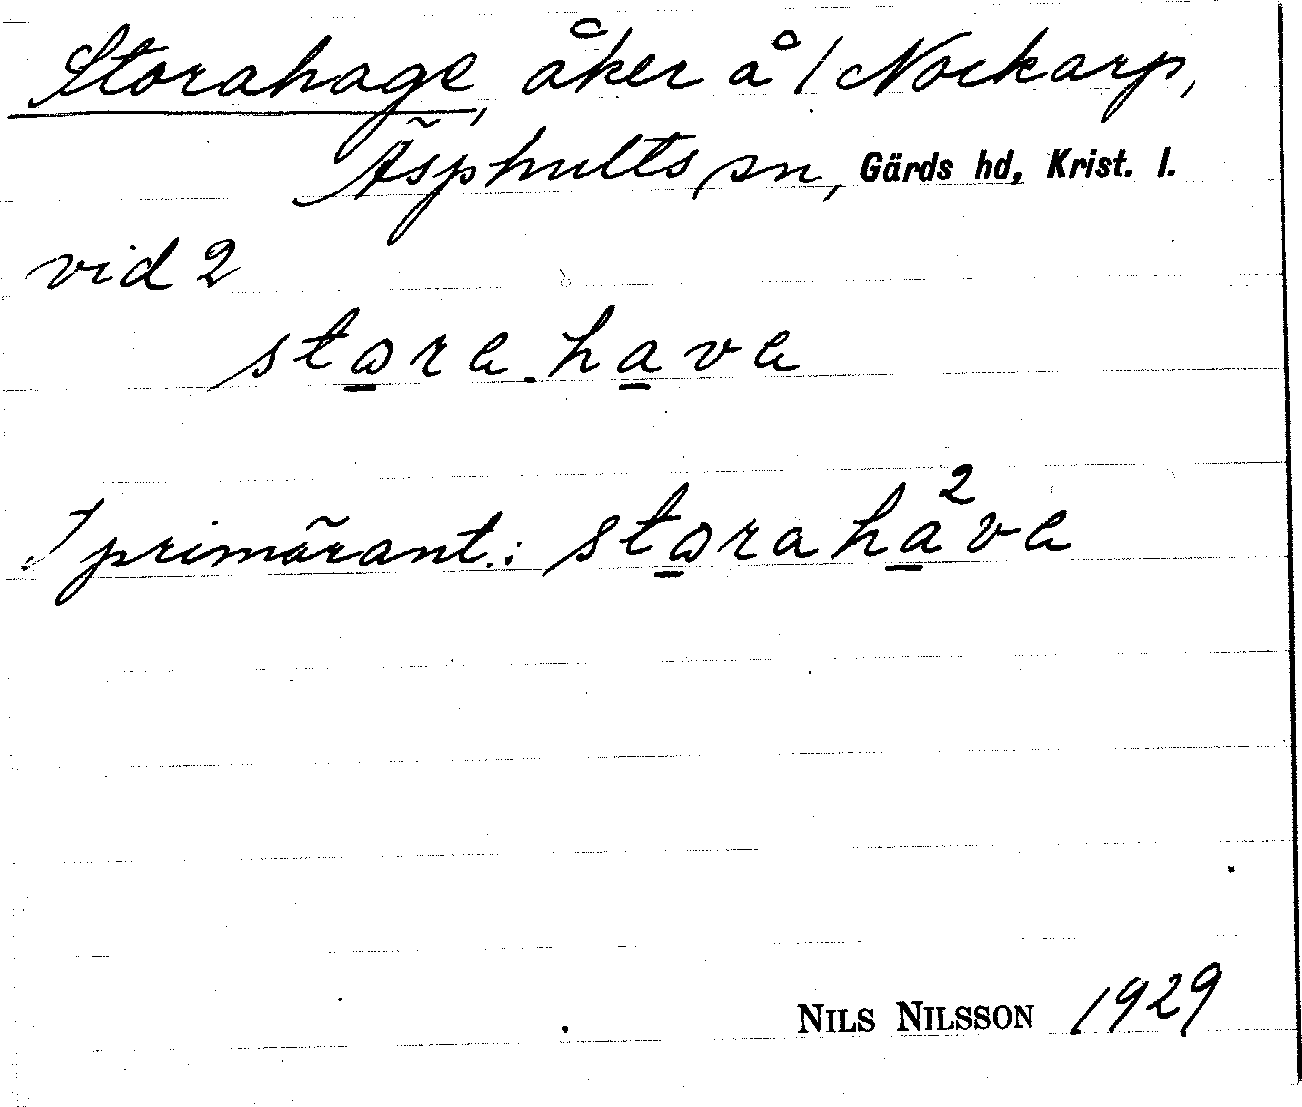 Storahage, åker å 1 Nockarp,
Äsphults sn, Gärds hd, Krist. l.
vid 2
stora.hava
I primärant.: storaha²va
NILS NILSSON 1929